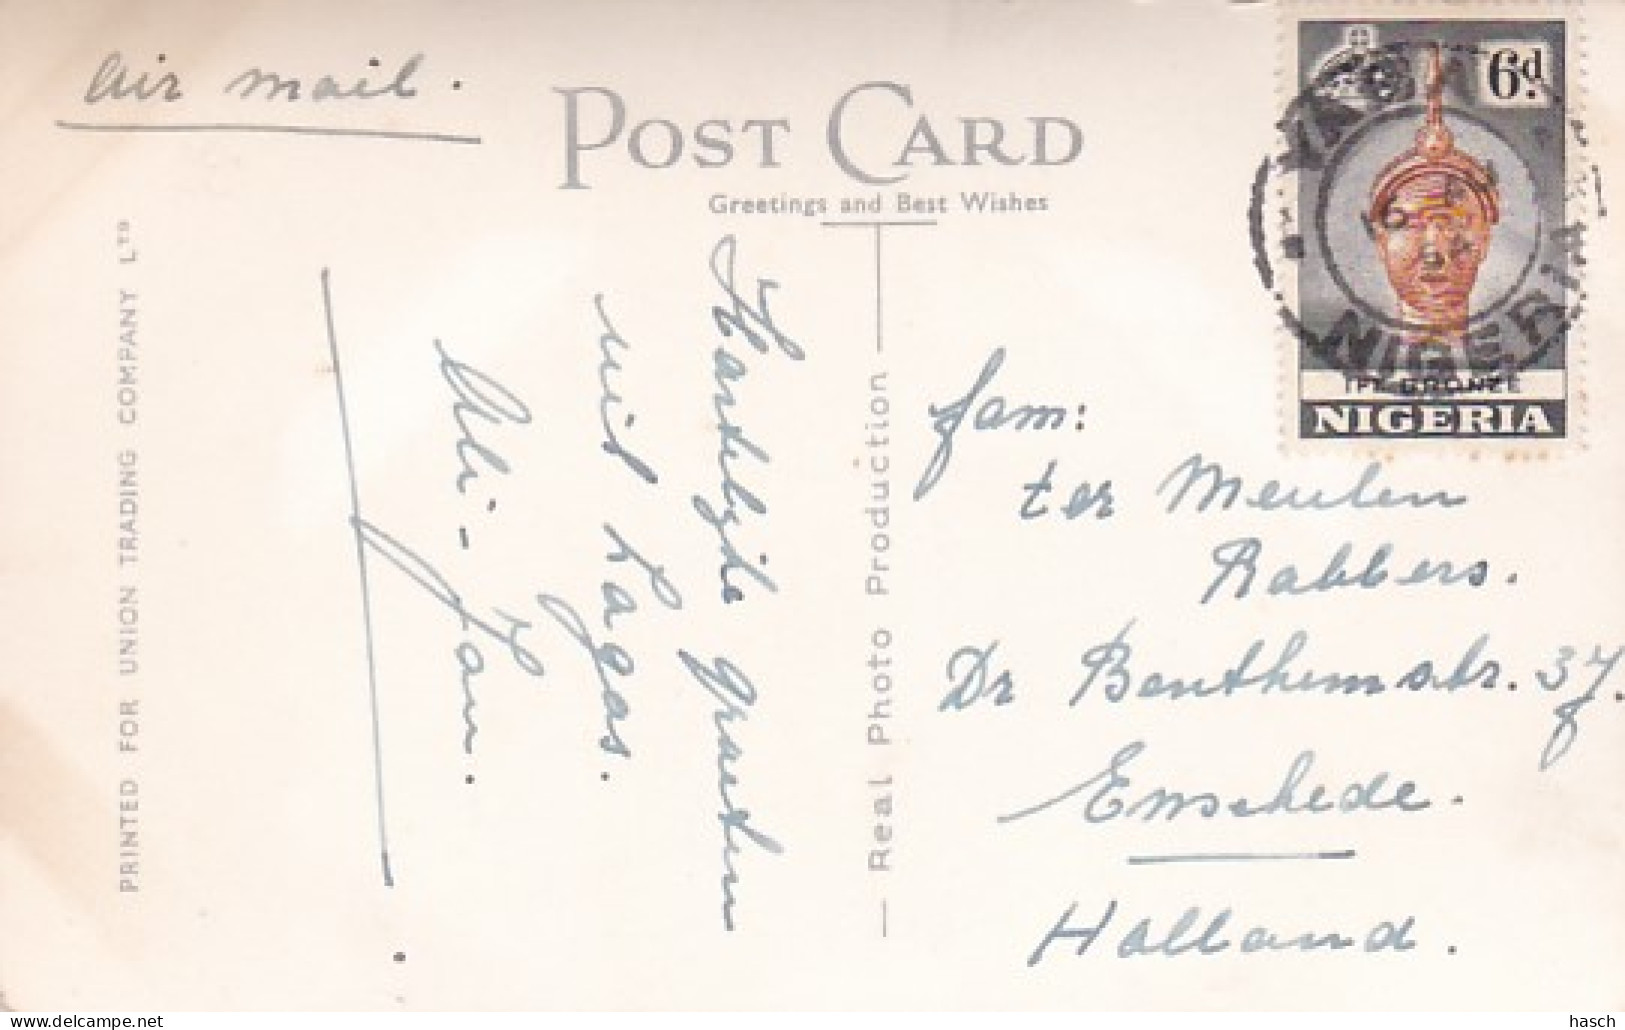 Air mail.
POST CARD
Greetings and Best Wishes
6d.
YABA
16
NIGERIA
IFE BRONZE
NIGERIA
PRINTED FOR UNION TRADING COMPANY LTD
Real Photo Production
Hartelijke groeten
uit Lagos.
Jan.
fam:
ter Meulen
Rabbers.
Dr Benthemstr. 37.
Enschede.
Holland.
delcampe.net
hasch